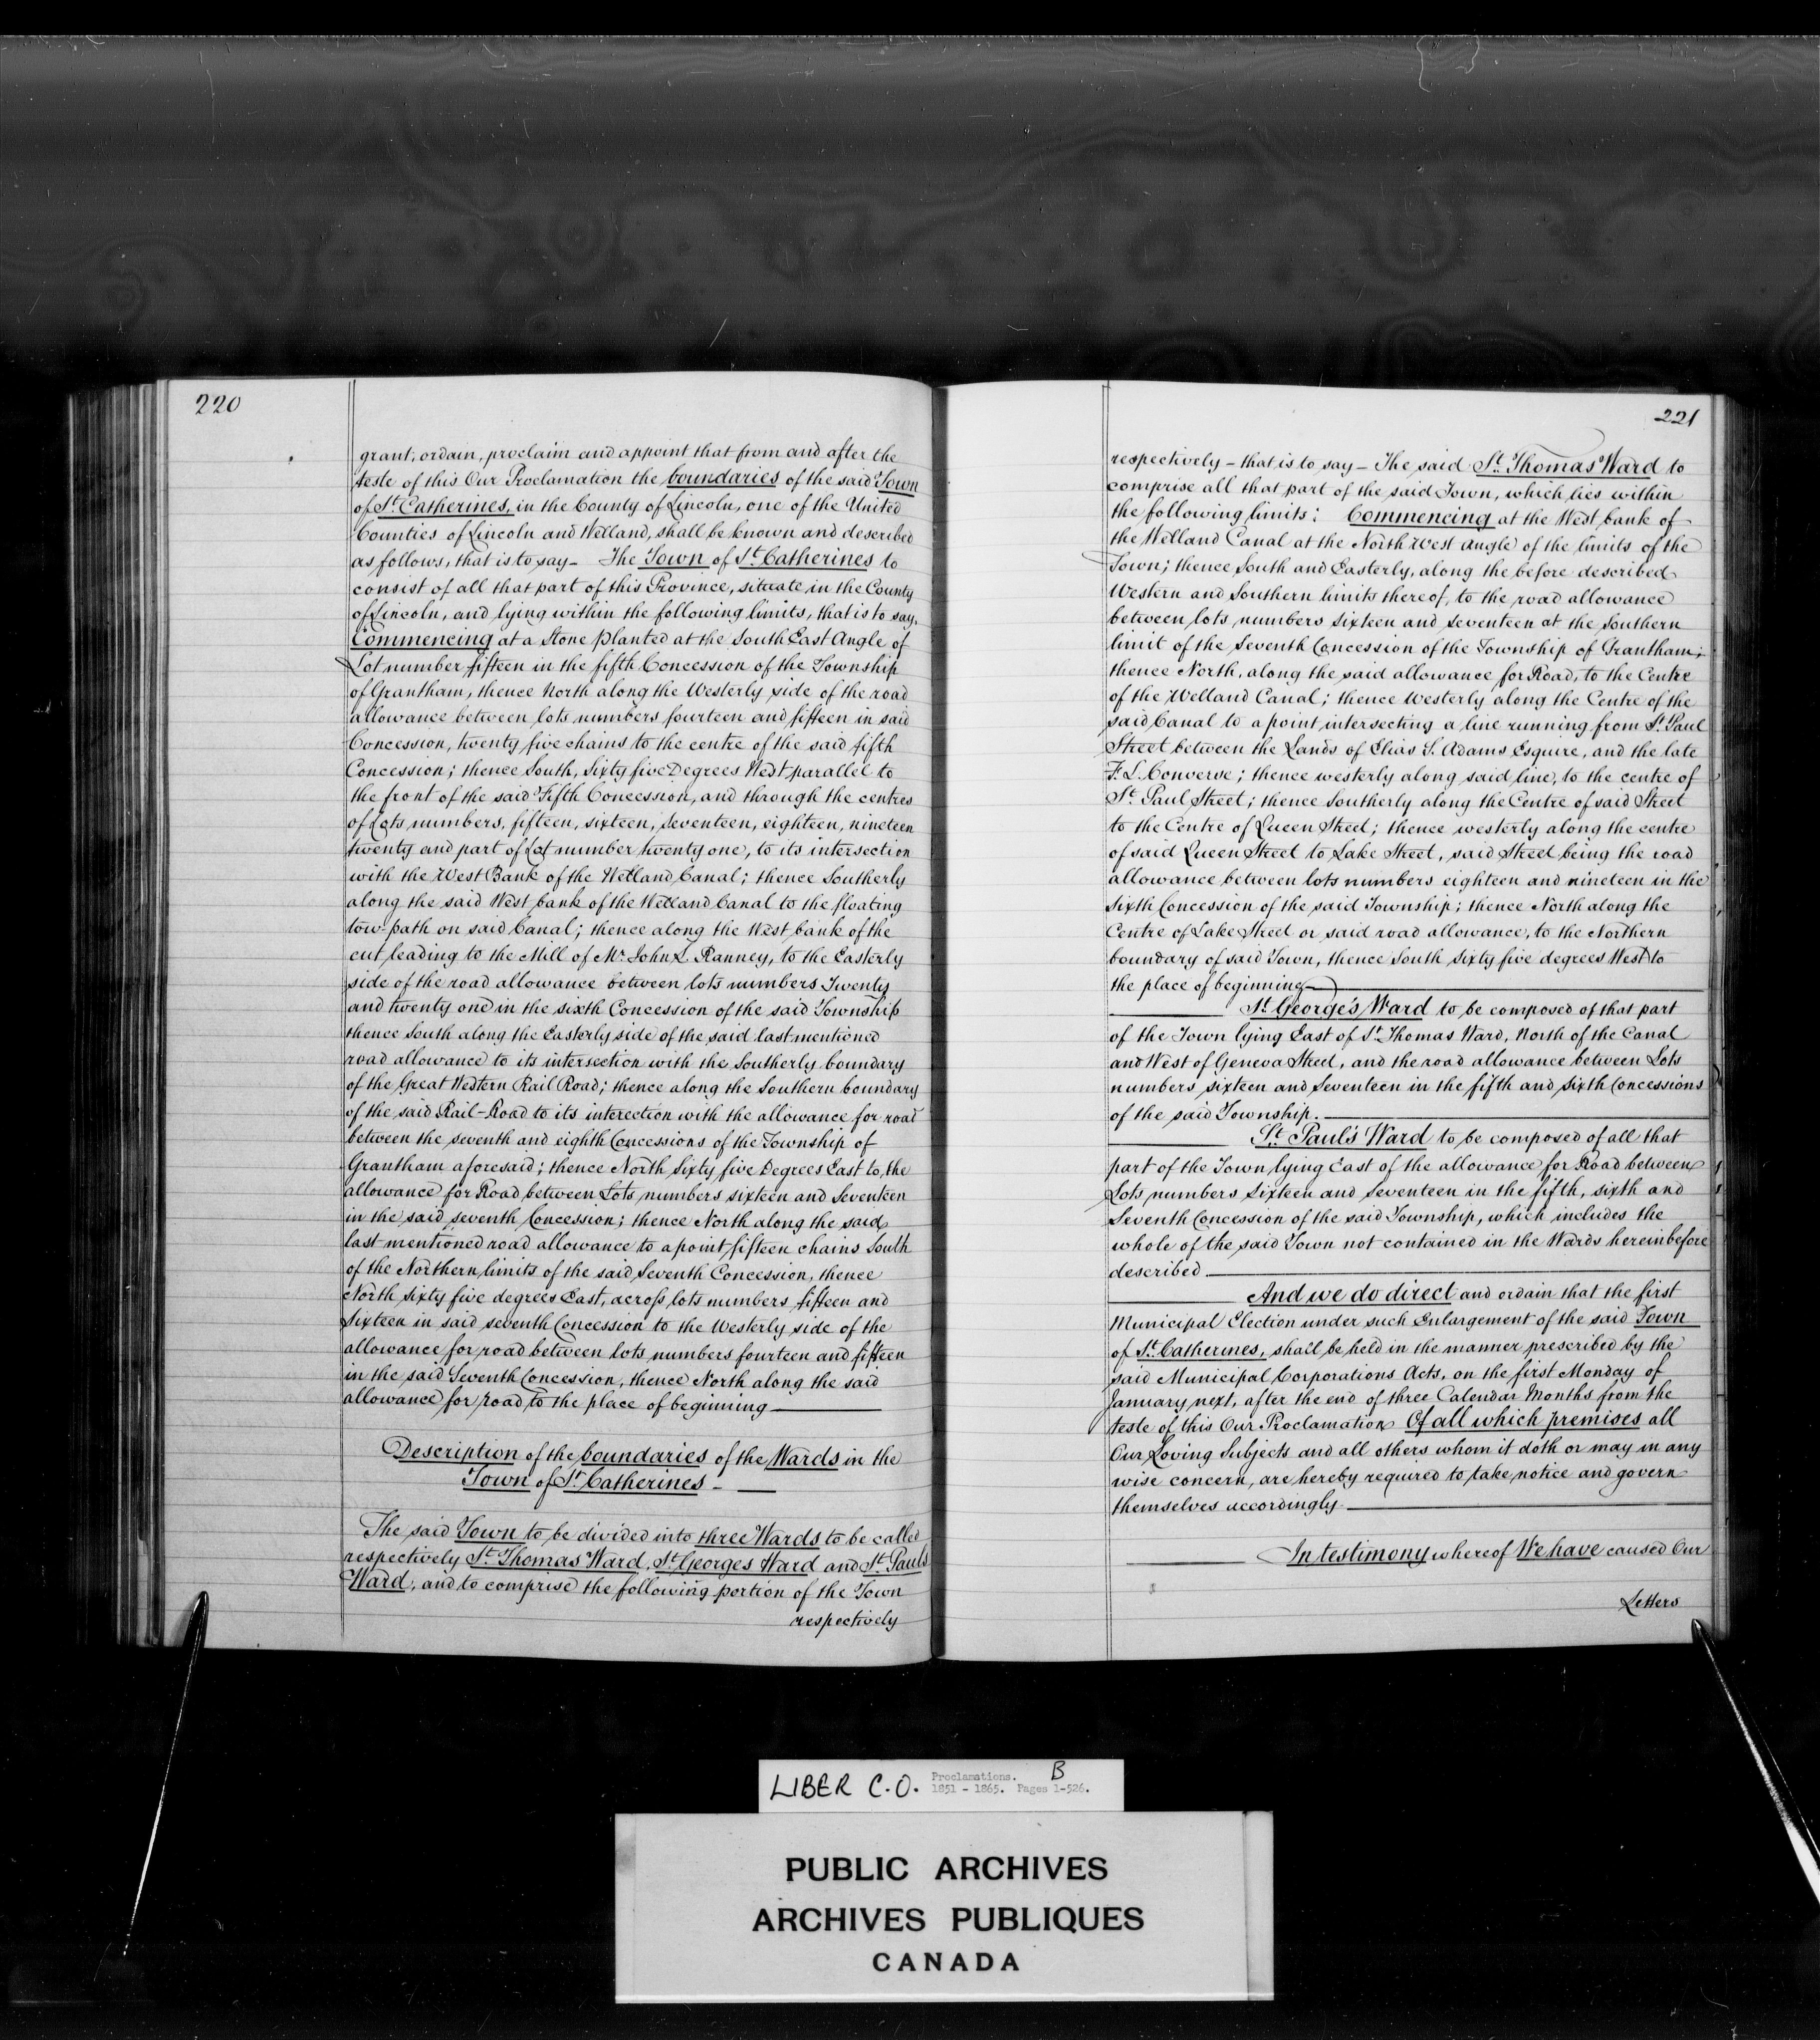 220
grant, ordain, proclaim and appoint that from and after the
teste of this Our Proclamation the boundaries of the said Town
of St. Catherines, in the County of Lincoln, one of the United
Counties of Lincoln and Welland, shall be known and described
as follows, that is to say – The Town of St. Catherines to
consist of all that part of this Province, situate in the County
of Lincoln, and lying within the following limits, that is to say,
Commencing at a Stone planted at the South East Angle of
Lot number fifteen in the fifth Concession of the Township
of Grantham, thence North along the Westerly side of the road
allowance between lots numbers fourteen and fifteen in said
Concession, twenty five chains to the centre of the said fifth
Concession; thence South, Sixty five Degrees West parallel to
the front of the said Fifth Concession, and through the centres
of Lots numbers, fifteen, sixteen, seventeen, eighteen, nineteen
twenty and part of Lot number twenty one, to its intersection
with the West Bank of the Welland Canal; thence Southerly
along the said West bank of the Welland Canal to the floating
tow-path on said Canal; thence along the West bank of the
cut leading to the Mill of Mr. John L. Ranney, to the Easterly
side of the road allowance between lots numbers Twenty
and twenty one in the sixth Concession of the said Township
thence South along the Easterly side of the said last mentioned
road allowance to its intersection with the Southerly boundary
of the Great Western Rail Road; thence along the Southern boundary
of the said Rail-Road to its interection with the allowance for road
between the seventh and eighth Concessions of the Township of
Grantham aforesaid; thence North Sixty five Degrees East to, the
allowance for Road between Lots numbers sixteen and Seventeen
in the said seventh Concession; thence North along the said
last-mentioned road allowance to a point fifteen chains South
of the Northern limits of the said Seventh Concession, thence
North sixty five degrees East, across lots numbers fifteen and
Sixteen in said seventh Concession to the Westerly side of the
allowance for road between lots numbers fourteen and fifteen
in the said Seventh Concession, thence North along the said
allowance for road to the place of beginning
Description of the boundaries of the Wards in the
Town of St. Catherines –
The said Town to be divided into three Wards to be called
respectively St. Thomas Ward, St. Georges Ward and St. Pauls
Ward, and to comprise the following portion of the Town
respectively
221
respectively – that is to say – The said St. Thomas Ward to
comprise all that part of the said Town, which lies within
the following limits: Commencing at the West bank of
the Welland Canal at the North West angle of the limits of the
Town; thence South and Easterly, along the before described
Western and Southern limits thereof, to the road allowance
between lots numbers sixteen and seventeen at the Southern
limit of the Seventh Concession of the Township of Grantham;
thence North, along the said allowance for Road, to the Centre
of the Welland Canal; thence Westerly along the Centre of the
said Canal to a point intersecting a line running from St. Paul
Street between the Lands of Elias S. Adams Esquire, and the late
F. L. Converse; thence westerly along said line, to the centre of
St. Paul Street; thence Southerly along the Centre of said Street
to the Centre of Queen Street; thence westerly along the centre
of said Queen Street to Lake Street, said Street being the road
allowance between lots numbers eighteen and nineteen in the
Sixth Concession of the said Township; thence North along the
Centre of Lake Street or said road allowance, to the Northern
boundary of said Town, thence South sixty five degrees West to
the place of beginning
St. George's Ward to be composed of that part
of the Town lying East of St. Thomas Ward, North of the Canal
and West of Geneva Street, and the road allowance between Lots
numbers sixteen and Seventeen in the fifth and sixth Concessions
of the said Township.
St. Paul's Ward to be composed of all that
part of the Town lying East of the allowance for Road between
Lots numbers Sixteen and Seventeen in the fifth, sixth and
Seventh Concession of the said Township, which includes the
whole of the said Town not contained in the Wards hereinbefore
described.
And we do direct and ordain that the first
Municipal Election under such Enlargement of the said Town
of St. Catherines, shall be held in the manner prescribed by the
said Municipal Corporations Acts, on the first Monday of
January next, after the end of three Calendar Months from the
teste of this Our Proclamation Of all which premises all
Our Loving Subjects and all others whom it doth or may in any
wise concern, are hereby required to take notice and govern
themselves accordingly
In testimony whereof We have caused Our
Letters
LIBER C.O. Proclamations. B
1851 - 1865. Pages 1-526.
PUBLIC ARCHIVES
ARCHIVES PUBLIQUES
CANADA